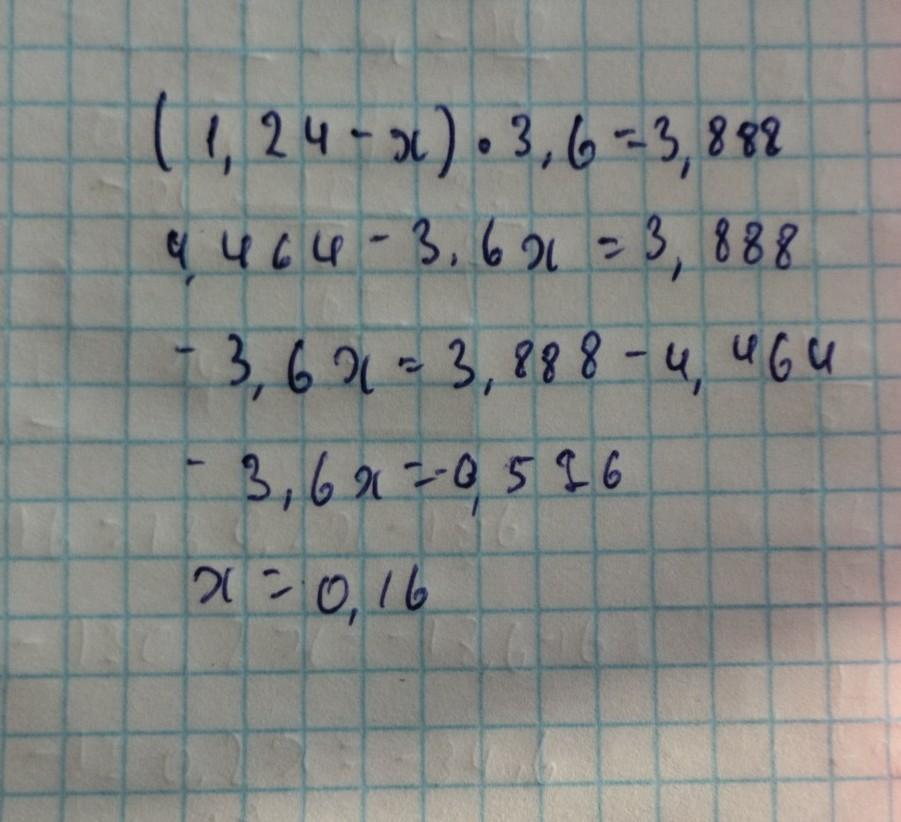 (1,24-x)•3,6=3,888
4,464-3,6x=3,888
-3,6x=3,888-4,464
-3,6x=-0,576
x=0,16